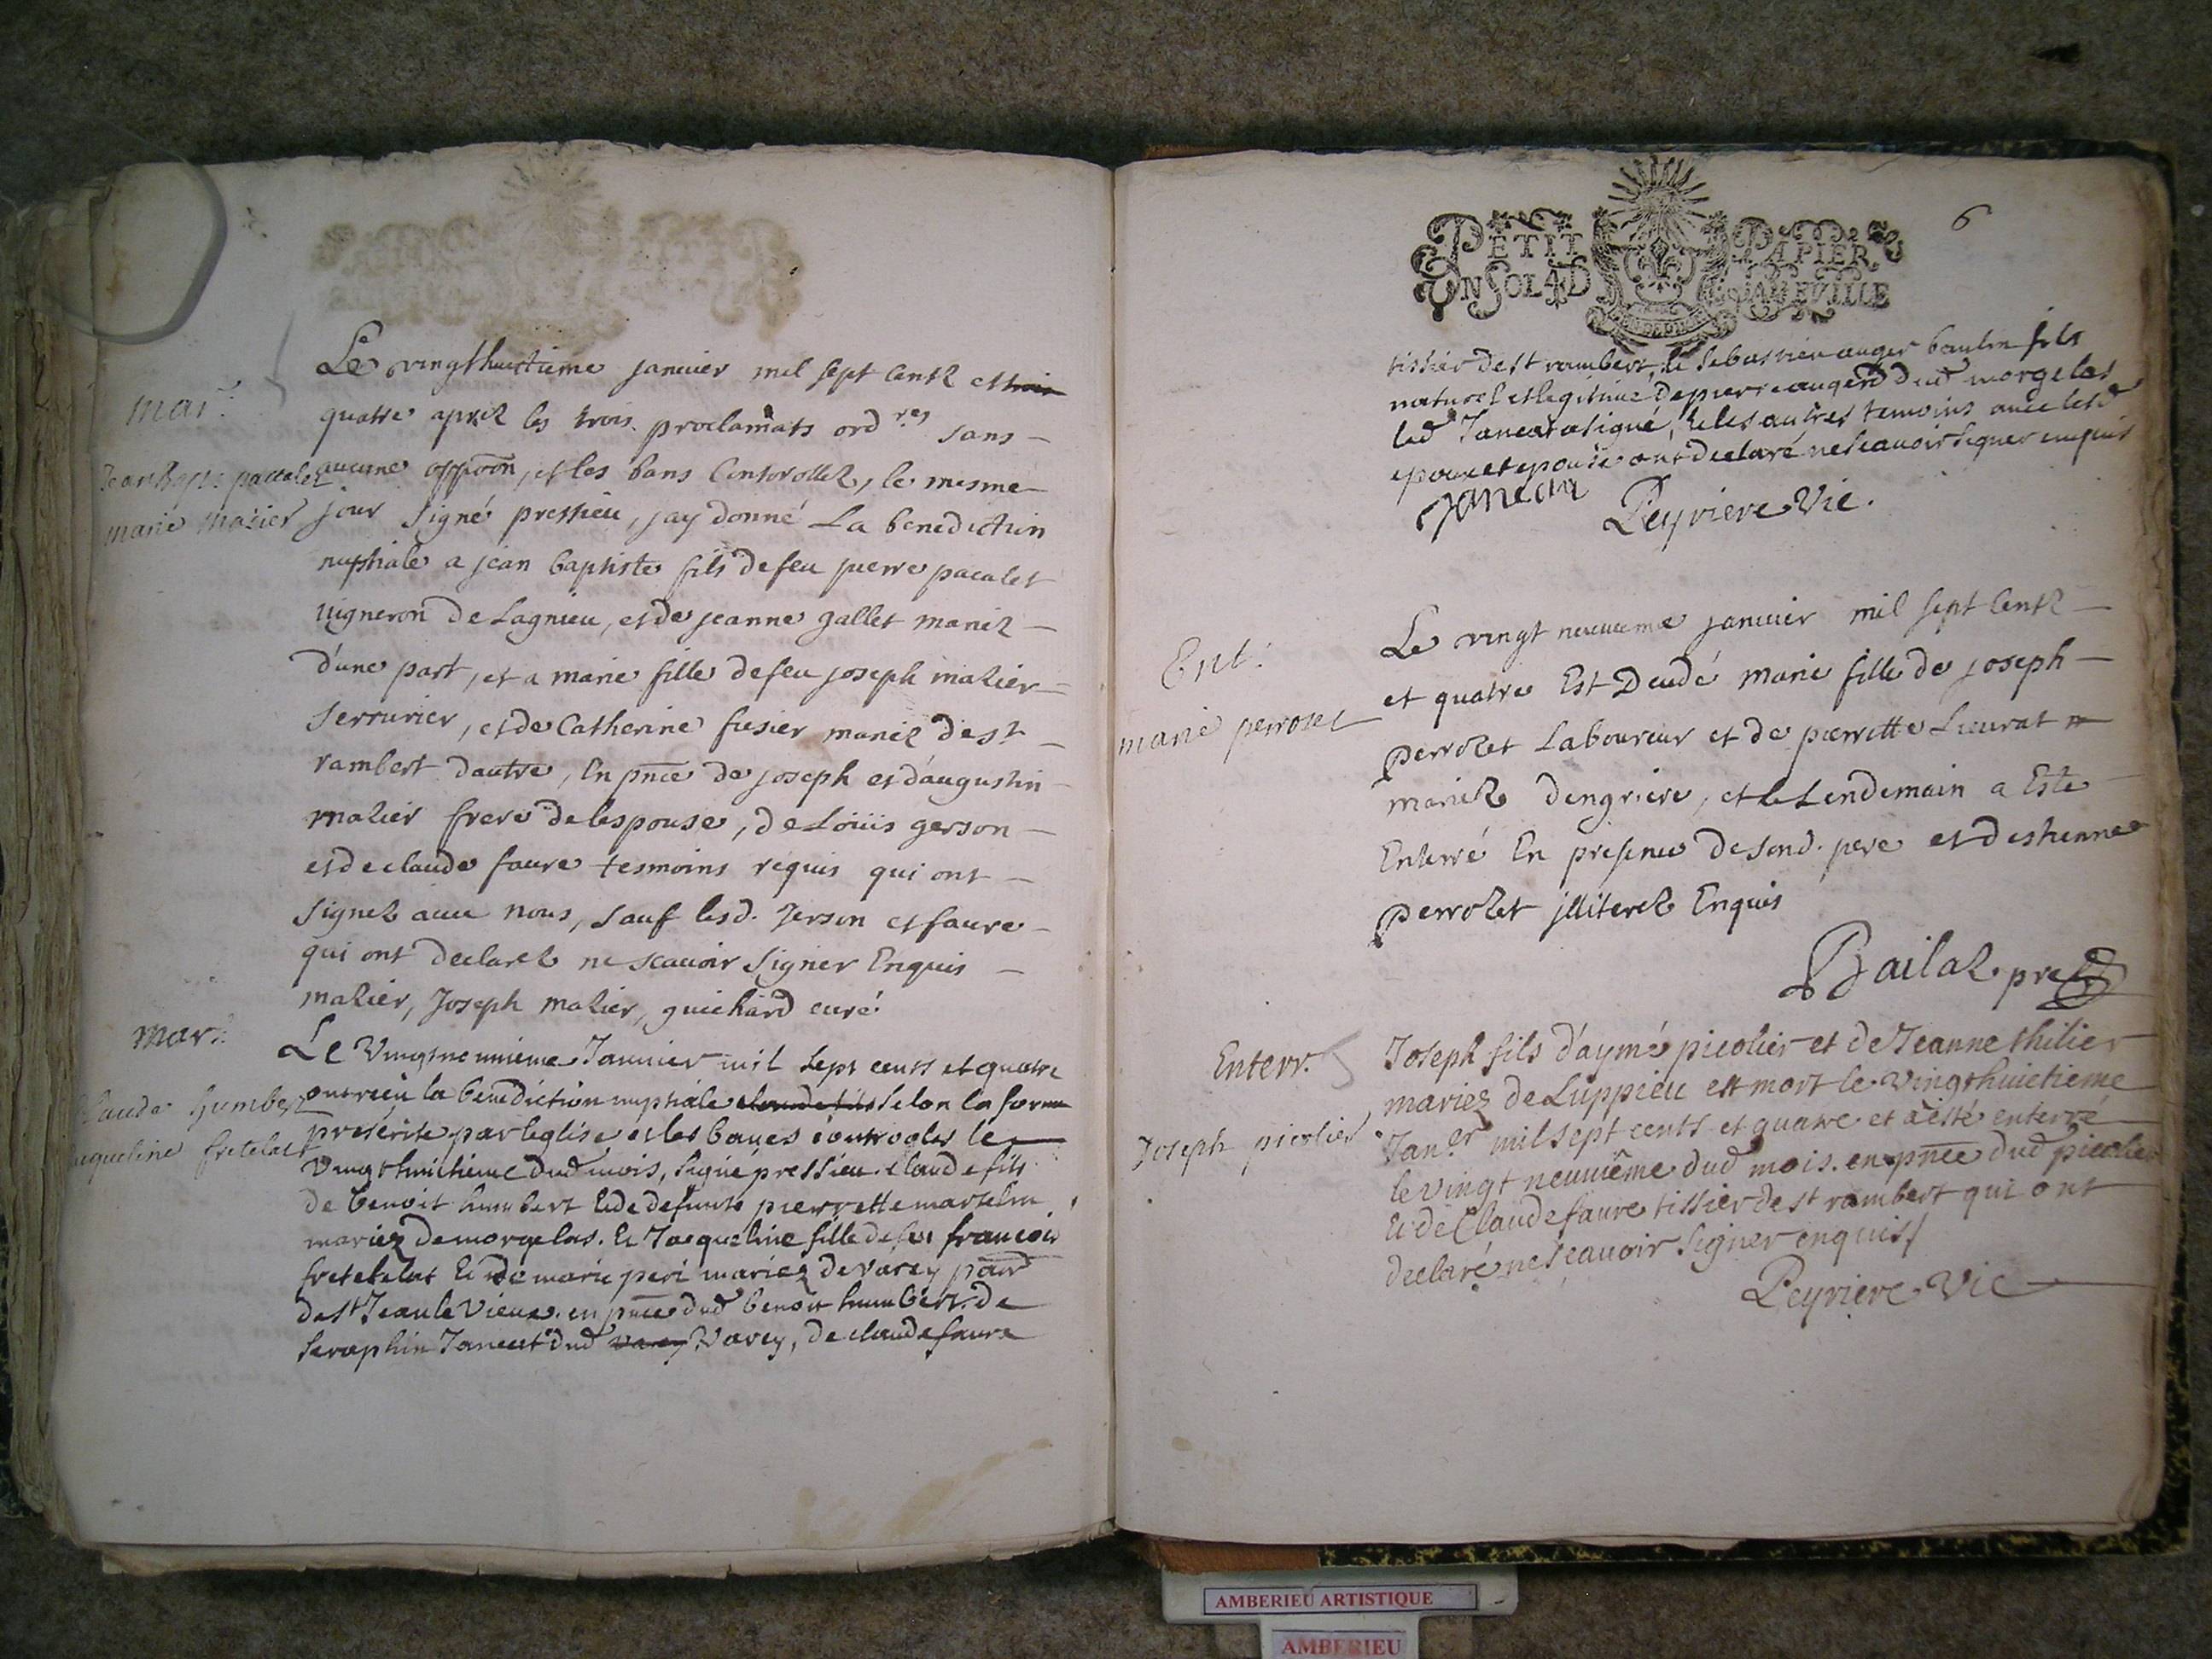 Mar.
Jean Bapte pacalet
marie Mazier
Le vingthuictieme janvier mil sept centz et trois
quatre aprez les trois proclamats ord.res sans
aucune oppoon, et les bans Controllez, le mesme
jour signé pressieu, jay donné La benediction
nuptiale a jean baptiste fils de feu pierre pacalet
vigneron de Lagnieu, et de jeanne gallet mariez
d'une part, et a marie fille de feu joseph mazier
serrurier, et de Catherine fusier mariez de st
rambert dautre, En pnce de joseph et d'augustin
mazier frere de lespouse, de Loüis gerson
et de claude faure tesmoins requis qui ont
signez avec nous, sauf lesd. Jerson et faure
qui ont declarez ne scavoir signer Enquis
mazier, Joseph mazier, guichard curé
Mar.
Claude humbert
jacqueline fretelat
Le Vingtneuvieme Janvier mil sept cents et quatre
ont reçu la benediction nuptiale claude fils selon la forme
prescrite par leglise et les bancs controgles le
Vingthuictieme dud mois, signé pressieu. claude fils
de benoit humbert et de defunte pierrette martelin
mariez de morgelas. Et Jacqueline fille de feu francois
fretelat Et de marie peri mariez de varey parr
de st Jean le Vieux. en pnce dud benoit humbert. de
seraphin Janeat dud varey Varey, de claude faure
6
PETIT PAPIER
UN SOL 4 D LA FEVILLE
tissier de st rambert, de sebastien auger baulin fils
naturel et legitime de pierre auger dud morgelas
led Janeat a signé, et les autres temoins avec lesd
epoux et epouse ont declaré ne scavoir signer enquis
Janeat
Peyriere Vic.
Ent.
marie perrozet
Le vingt neuvieme janvier mil sept Centz
et quatre Est Decedé marie fille de joseph
perrozet Laboureur et de pierrette Lieurat
mariez dengriere, et le Lendemain a Esté
Enterré En presence de sond. pere et destienne
perrozet jlliterez Enquis
Bailaz. pre
Enterr.
Joseph picolier
Joseph fils d'aymé picolier et de Jeanne thilier
mariez de Luppieu est mort le vingthuictieme
Jan.er mil sept cents et quatre et a esté enterré
le vingt neuviême dud mois. en pnce dud picolier
Et de Claude faure tissier de st rambert qui ont
declaré ne scavoir signer enquis/
Peyriere Vic
AMBERIEU ARTISTIQUE
AMBERIEU